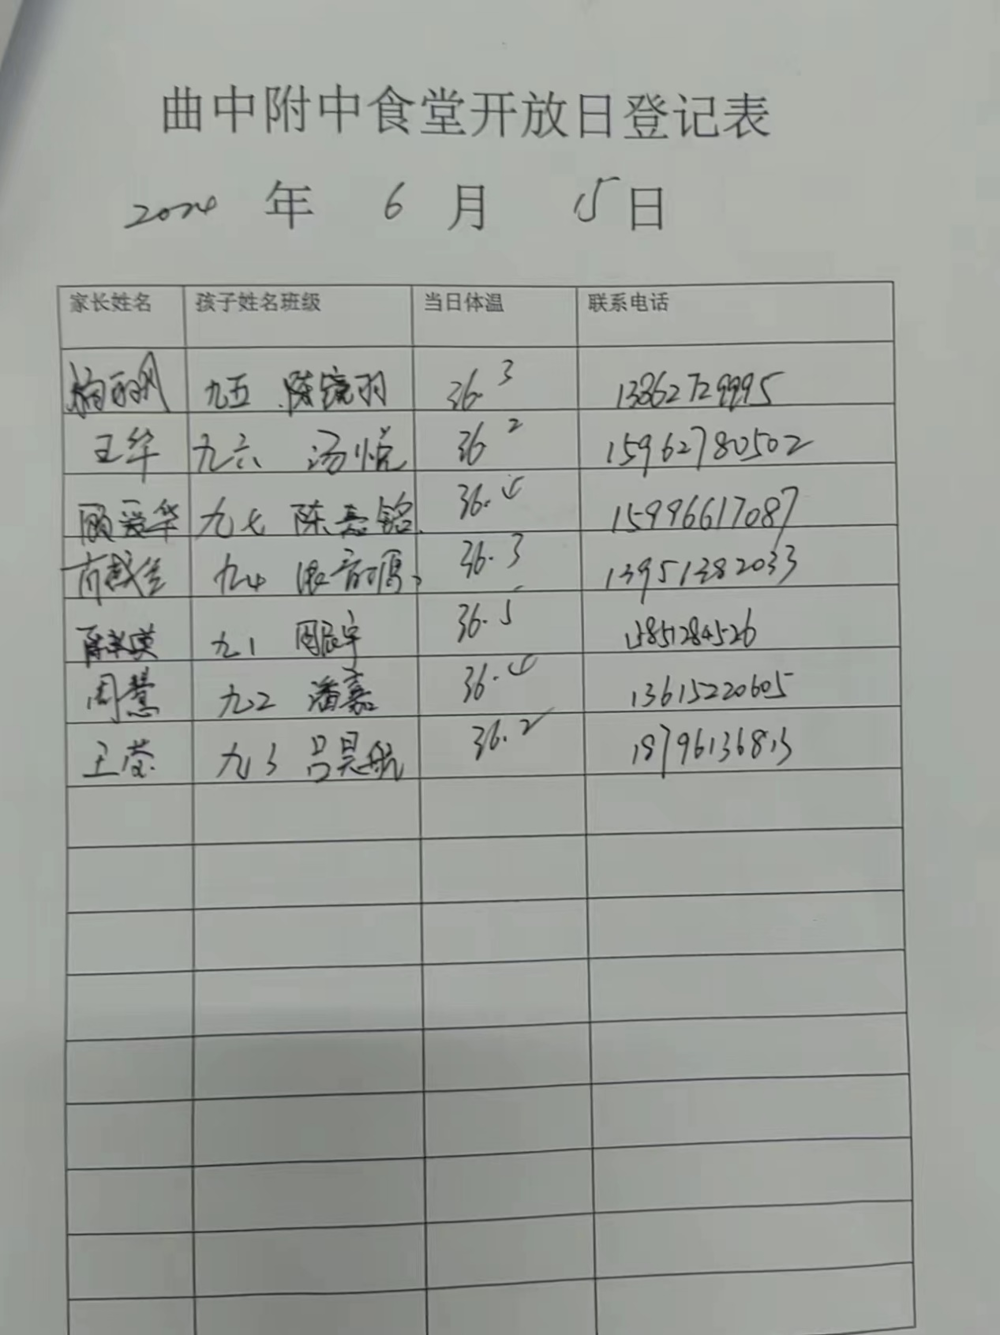 曲中附中食堂开放日登记表
2024 年 6 月 15 日
家长姓名 孩子姓名班级 当日体温 联系电话
九五 陈镜羽 36.3 13862729995
王华 九六 汤悦 36.2 15962780502
顾爱华 九七 陈嘉铭 36.4 15996617087
九4 36.3 13951382033
九1 周辰宇 36.5 13851284526
周慧 九2 潘嘉 36.4 13615220605
王莹 九3 吕昊航 36.2 18796136813